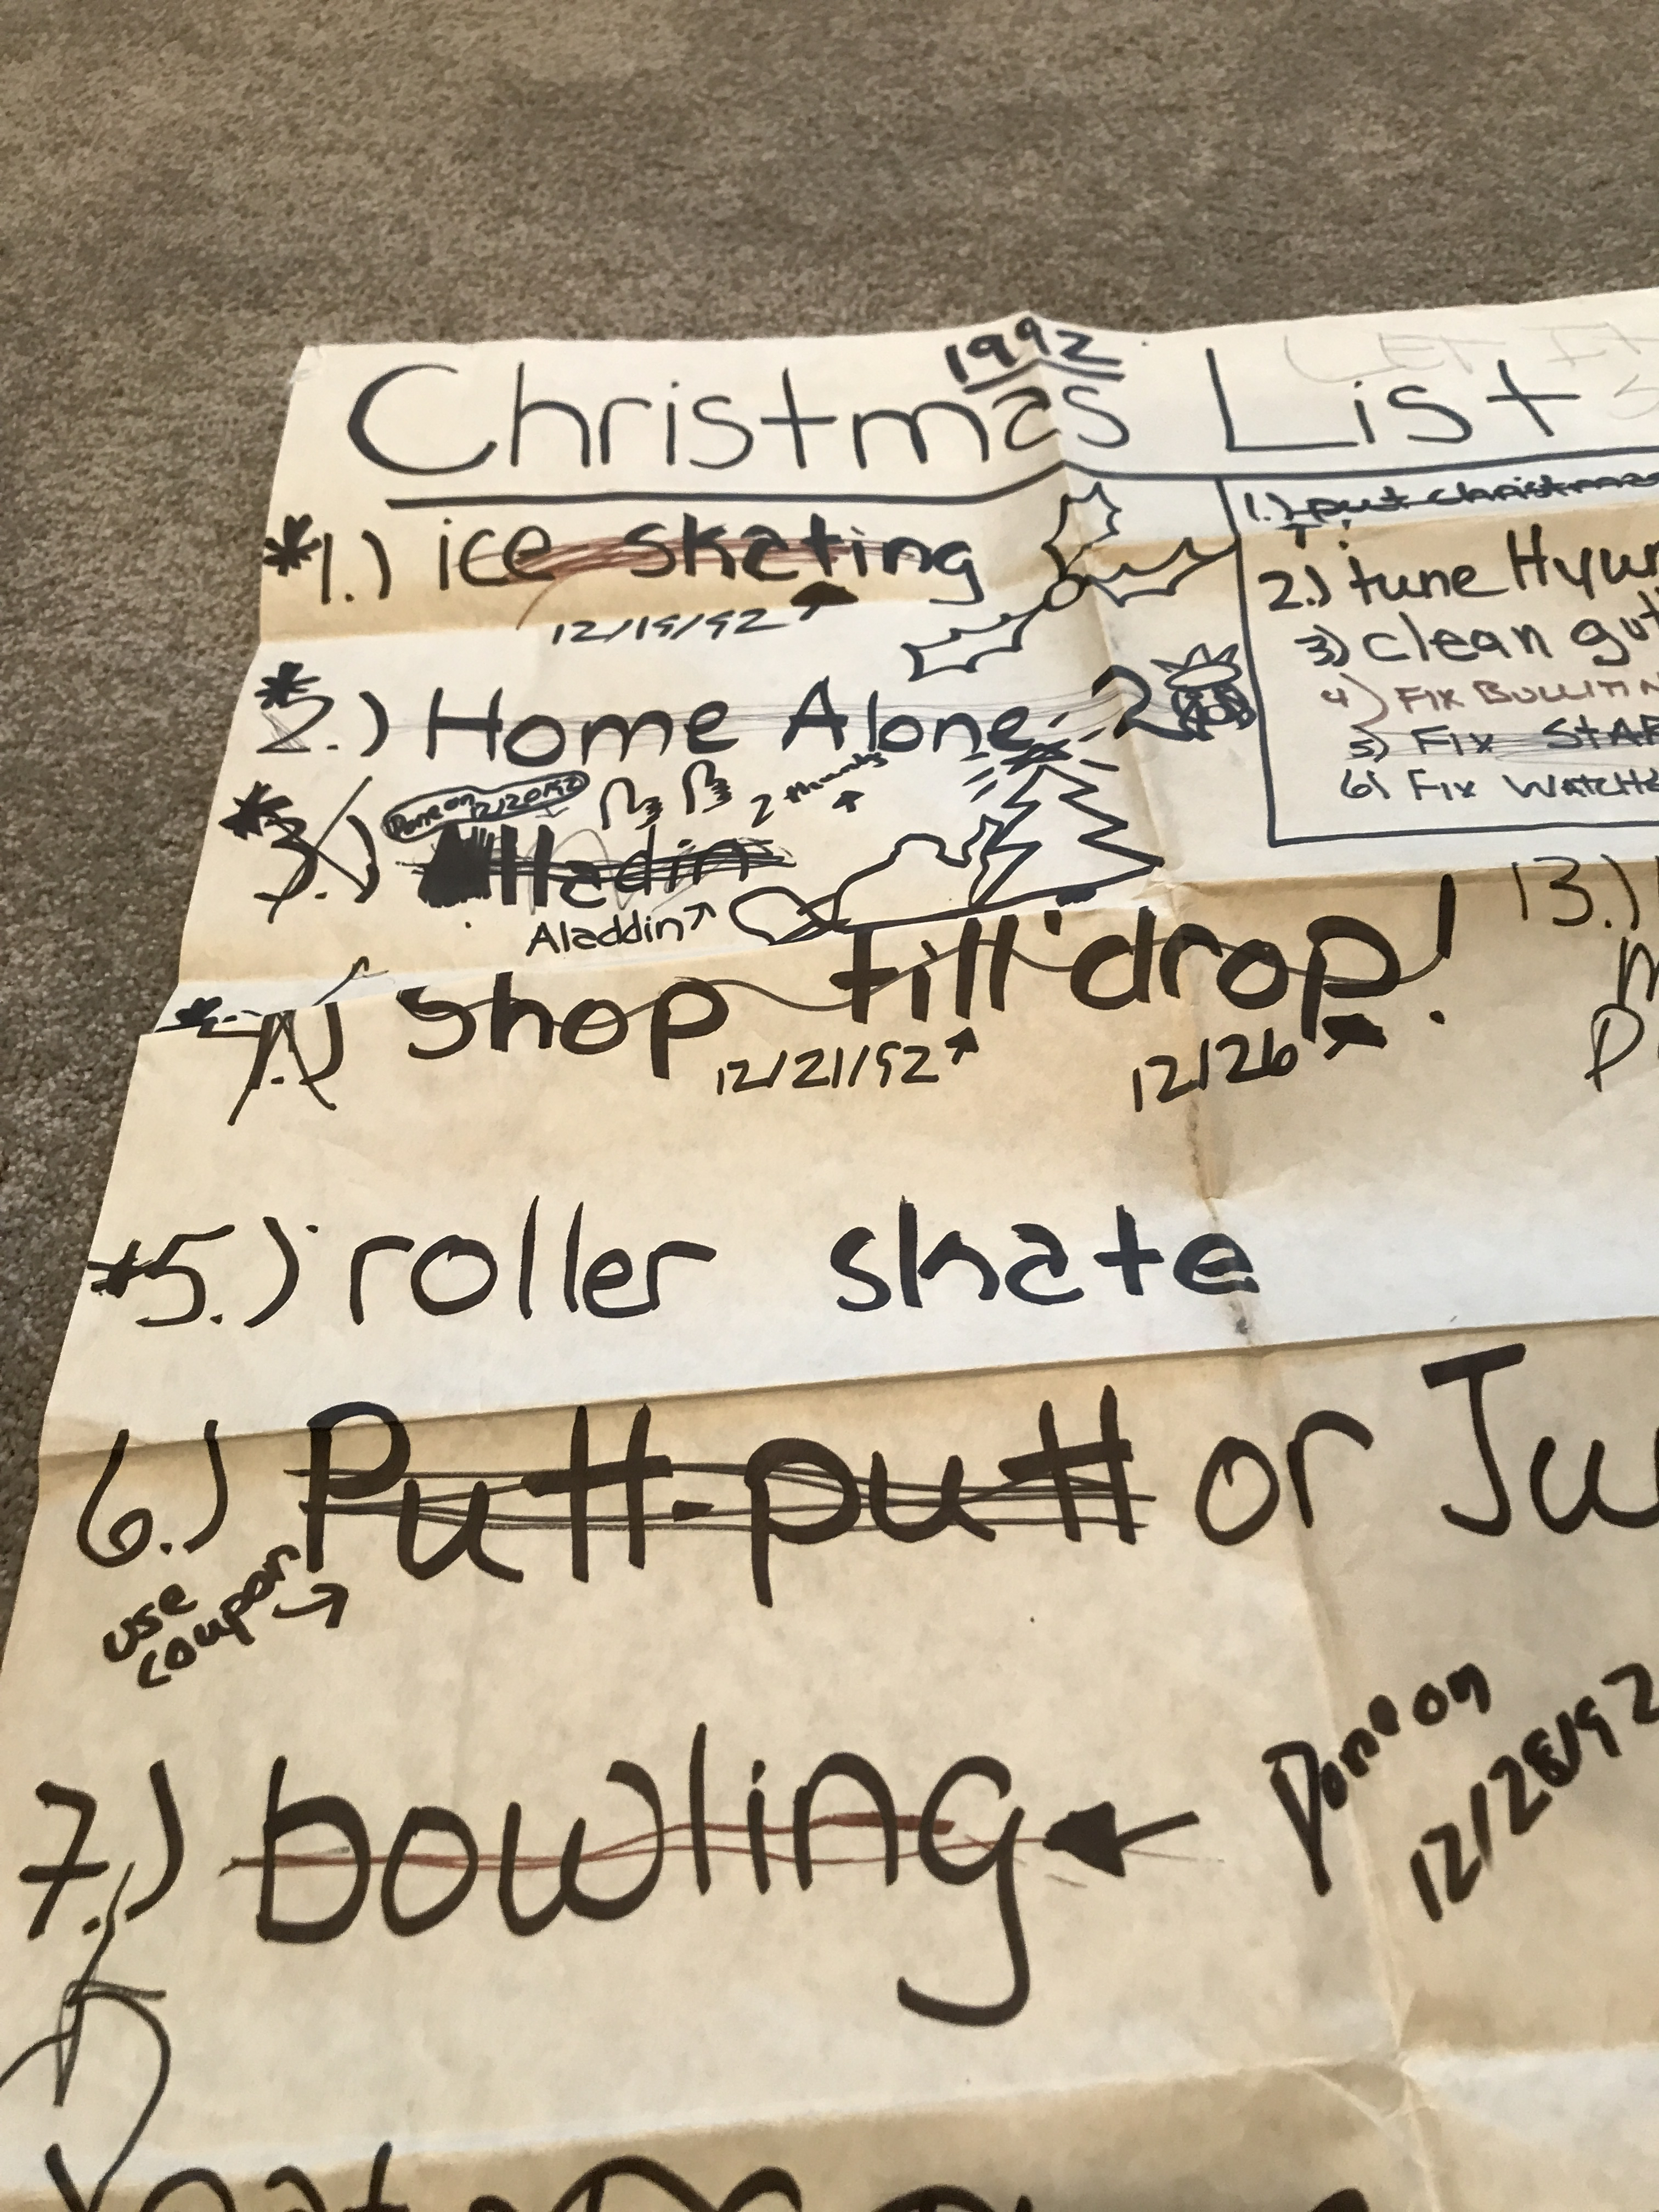 1992
Christmas List
*1.) ice skating
12/19/92
*2.) Home Alone 2
Done on 12/20/92
2 thumbs
*3.) Alladin
Aladdin
*4.) Shop till drop!
12/21/92
12/26
*5.) roller skate
6.) Putt-putt or Ju
use
coupon
7.) bowling
Done on
12/28/92
1.) put christmas
2.) tune Hyun
3) clean gut
4) FIX BULLITIN
5) FIX STAR
6) FIX WATCH
13.)